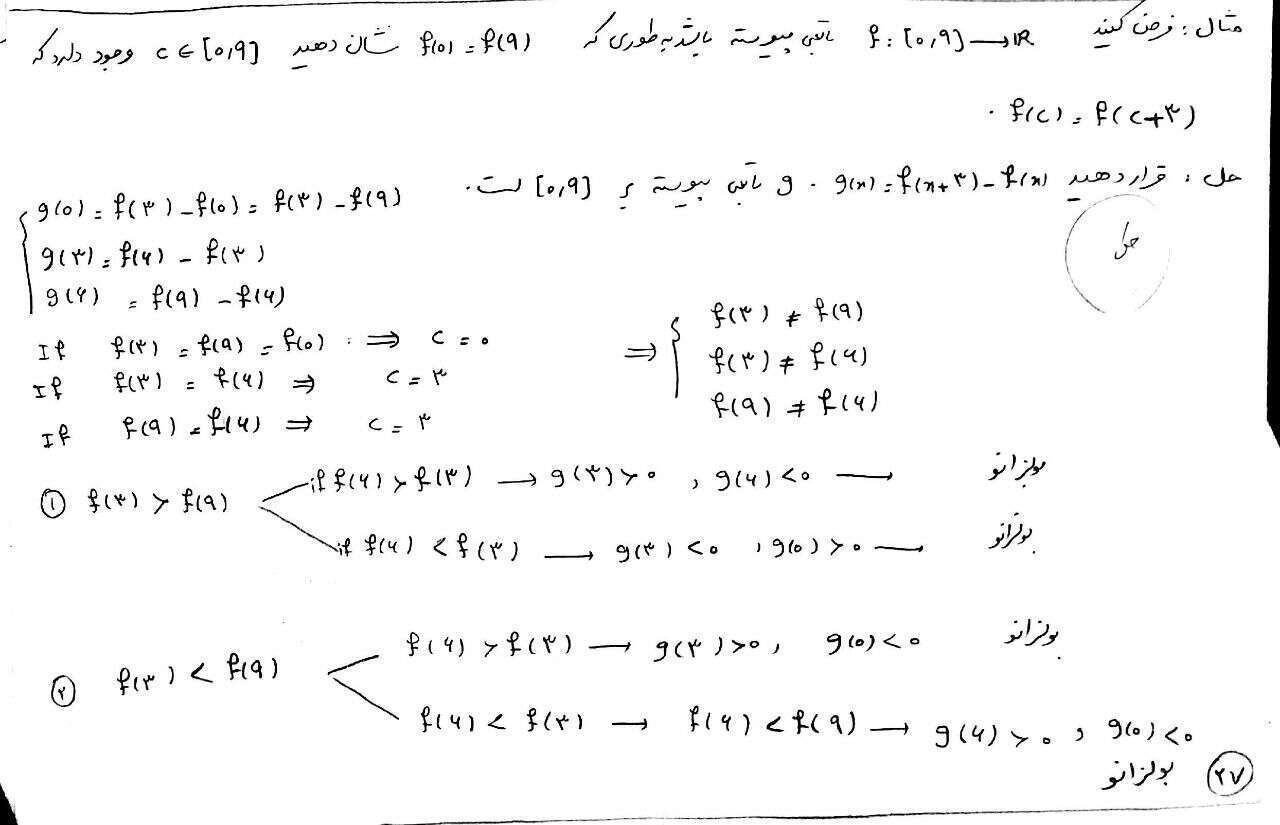 مثال : فرض کنید f : [0,9] → IR تابعی پیوسته باشد به طوری که f(0) = f(9) نشان دهید c ∈ [0,9] وجود دارد که
f(c) = f(c+۳) .
حل : قرار دهید g(x) = f(x+۳) - f(x) . g تابعی پیوسته بر [0,9] است.
حل
g(0) = f(۳) - f(0) = f(۳) - f(9)
g(۳) = f(۶) - f(۳)
g(۶) = f(9) - f(۶)
If f(۳) = f(9) = f(0) ⇒ c = 0
If f(۳) = f(۶) ⇒ c = ۳
If f(9) = f(۶) ⇒ c = ۳
⇒ f(۳) ≠ f(9)
f(۳) ≠ f(۶)
f(9) ≠ f(۶)
① f(۳) > f(9)
if f(۶) > f(۳) → g(۳) > 0 , g(۶) < 0 — بولزانو
if f(۶) < f(۳) → g(۳) < 0 , g(0) > 0 — بولزانو
② f(۳) < f(9)
f(۶) > f(۳) → g(۳) > 0 , g(0) < 0 بولزانو
f(۶) < f(۳) → f(۶) < f(9) → g(۶) > 0 و g(0) < 0
بولزانو
۲۷